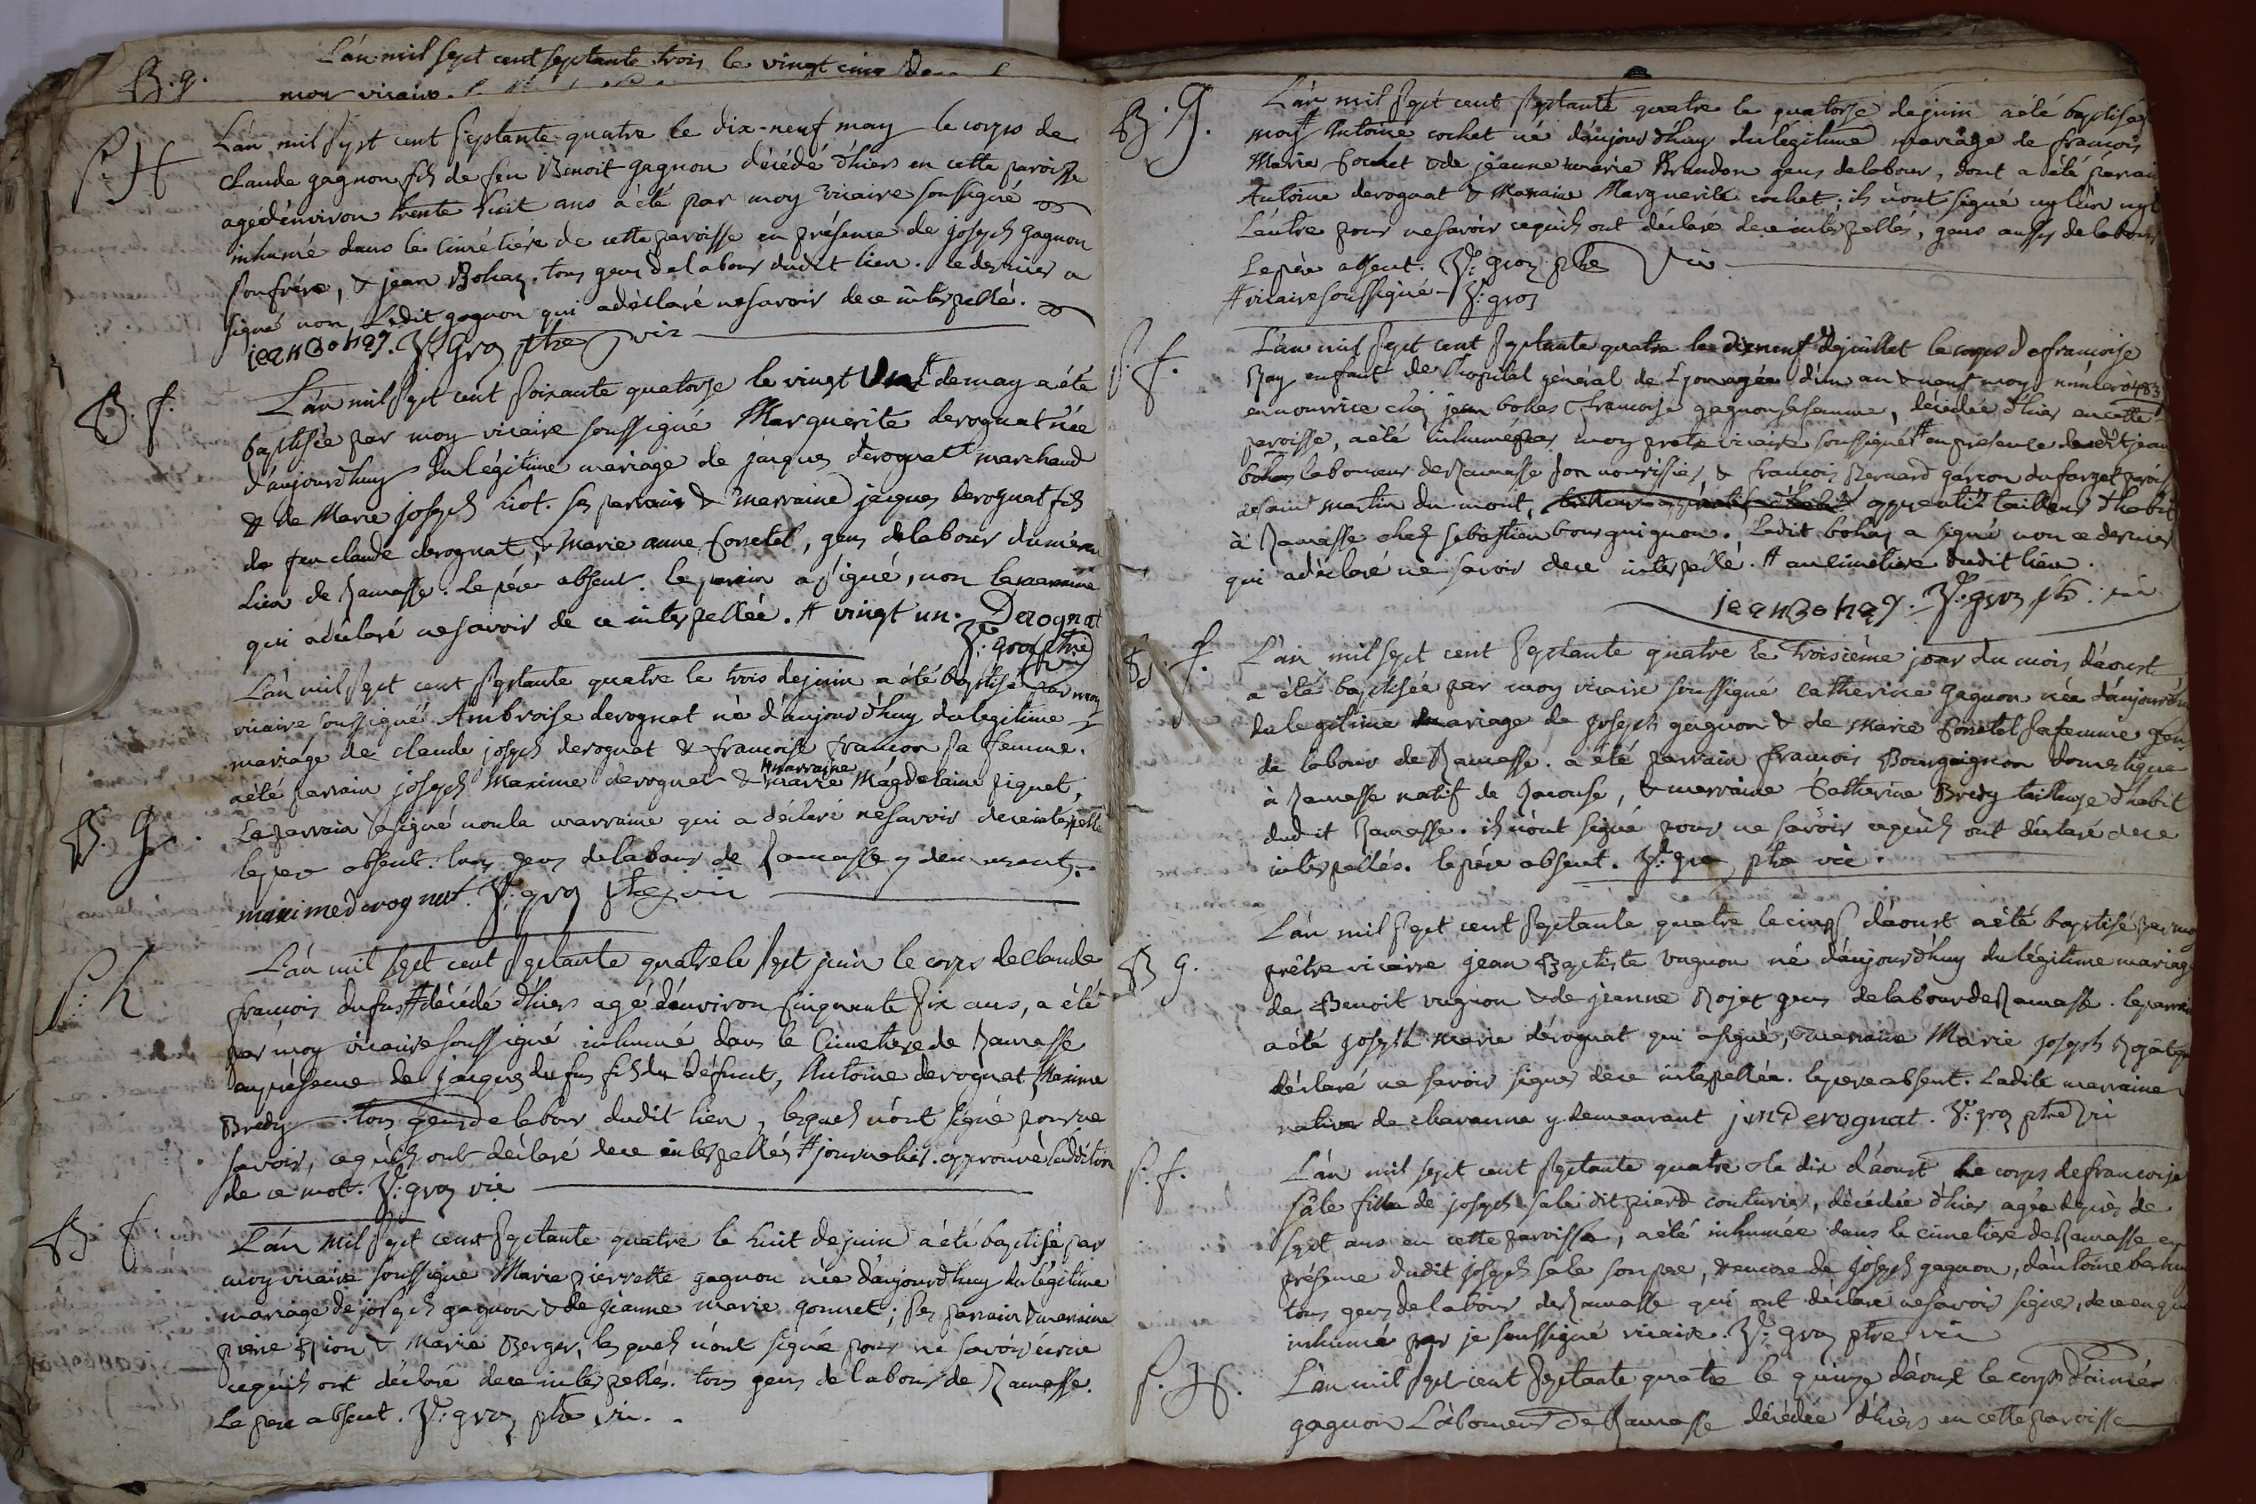 L'an mil sept cent septante trois le vingt cinq
B. g.
moy vicaire
S. H
L'an mil sept cent septante quatre le dix-neuf may le corps de
Claude gagnon fils de feu Benoit gagnon décédé d'hiers en cette paroisse
agé d'environ trente huit ans à été par moy vicaire soussigné
inhumé dans le Cimétiére de cette paroisse en présence de joseph gagnon
son frére, & jean Bohas. tous gens de labour dudit lieu. ce dernier a
signé non Ledit gagnon qui a déclaré ne savoir de ce interpellé.
jean Bohas. gros ptre vic
B. f.
L'an mil sept cent soixante quatorze le vingt # de may a été
baptisée par moy vicaire soussigné Marguerite derognat née
d'aujourdhuy du légitime mariage de jacques derognat marchand
& de Marie joseph riot. ses parrain & marraine jacques derognat fils
de feu claude derognat, & Marie anne Convetel, gens de labour du même
Lieu de Ramasse. Le pére absent. le parrain a signé, non la marraine
qui a déclaré ne savoir de ce interpellée. # vingt un. Derognat
gros ptre
L'an mil sept cent septante quatre le trois de juin a été baptisé par moy
vicaire soussigné Ambroise derognat né d'aujourdhuy du legitime
mariage de claude joseph derognat & francoise francon sa femme.
B. G.
a été parrain joseph Maxime derognat & marraine marie Magdelaine piquet,
Le parrain a signé non la marraine qui a déclaré ne savoir de ce interpellé
le pere absent. tous gens de labour de Ramasse y demeurants.
maxime derognat. gros ptre vic
S. h
L'an mil sept cent septante quatre le sept juin le corps de Claude
francois dufus # décédé d'hiers agé d'environ cinquante six ans, a été
par moy vicaire soussigné inhumé dans le Cimetiere de Ramasse
en présence de jacques dufus fils du défunt, Antoine derognat, Maxime
Bredy tous gens de labour dudit lieu, lesquels n'ont signé pour ne
savoir, ce qu'ils ont déclaré de ce interpellés # journalier. approuvé l'addition
de ce mot. gros vic
B. f.
L'an mil sept cent septante quatre le huit de juin a été baptisée par
moy vicaire soussigné Marie pierrette gagnon née d'aujourdhuy du légitime
mariage de joseph gagnon & de jeanne marie gonnet; ses parrain & marraine
pierre pion & Marie Berger, lesquels n'ont signé pour ne savoir écrire
ce qu'ils ont déclaré de ce interpellés. tous gens de labour de Ramasse.
Le pere absent. gros ptre vic.
B. G.
L'an mil sept cent septante quatre le quatorze de juin a été baptisé par
moy # Antoine cochet né d'aujourdhuy du légitime mariage de francois
Marie Cochet & de jeanne marie Brandon gens de labour, dont a été parrain
Antoine derognat & Maraine Marguerite cochet; ils n'ont signé ny l'un ny
L'autre pour ne savoir ce qu'ils ont déclaré de ce interpellés, gens aussy de labour
Le pére absent. gros ptre vic
# vicaire soussigné - gros
S. f.
L'an mil sept cent septante quatre le dix neuf de juillet le corps de francoise
Ray enfant de l'hopital général de Lyon agée d'un an & neuf moy numéro
en nourrice chez jean bohas & francoise gagnon sa femme, décédée d'hier en cette
paroisse, a été inhumé par moy pretre vicaire soussigné # en présence dudit jean
bohas laboureur de Ramasse son nourissier, & francois Bernard garcon du farget paroisse
de saint martin du mont, apprentis tailleur d'habit
à Ramasse chez sebastien bourguignon. Ledit bohas a signé non ce dernier
qui a déclaré ne savoir de ce interpellé. # au cimetiere dudit lieu.
jean Bohas. gros ptre vic
B. f.
L'an mil sept cent septante quatre le troisième jour du mois d'aoust
a été baptisée par moy vicaire soussigné catherine gagnon née d'aujourdhuy
du legitime mariage de joseph gagnon & de Marie Convetel sa femme gens
de labour de Ramasse. a été parrain francois Bourguignon domestique
à Ramasse natif de Racouse, & marraine Catherine Bredy tailleuse d'habit
dudit Ramasse. ils n'ont signé pour ne savoir ce qu'ils ont déclaré de ce
interpellés. le pére absent. gros ptre vic.
B g.
L'an mil sept cent septante quatre le cinq d'aoust a été baptisé par moy
prêtre vicaire jean Baptiste vugnon né d'aujourdhuy du légitime mariage
de Benoit vugnon & de jeanne Rojat gens de labour de Ramasse. le parrain
a été joseph marie dérognat qui a signé, & marraine Marie joseph Rojat qui
déclaré ne savoir signer de ce interpellée. le pere absent. Ladite marraine
native de chavanne y demeurant j m Derognat. gros ptre vi
S. f.
L'an mil sept cent septante quatre le dix d'aoust le corps de francoise
sale fille de joseph sale dit piard couturier, décédée d'hier agée de près de
sept ans en cette paroisse, a été inhumée dans le cimetiere de Ramasse en
présence dudit joseph sale son pere, & encore de joseph gagnon, d'antoine
tous gens de labour de Ramasse qui ont déclaré ne savoir signer, de ce enquis
inhumé par je soussigné vicaire. gros ptre vic
S. H.
L'an mil sept cent septante quatre le quinze d'aoust le corps d'aimée
gagnon Laboureur de Ramasse décédée d'hiers en cette paroisse